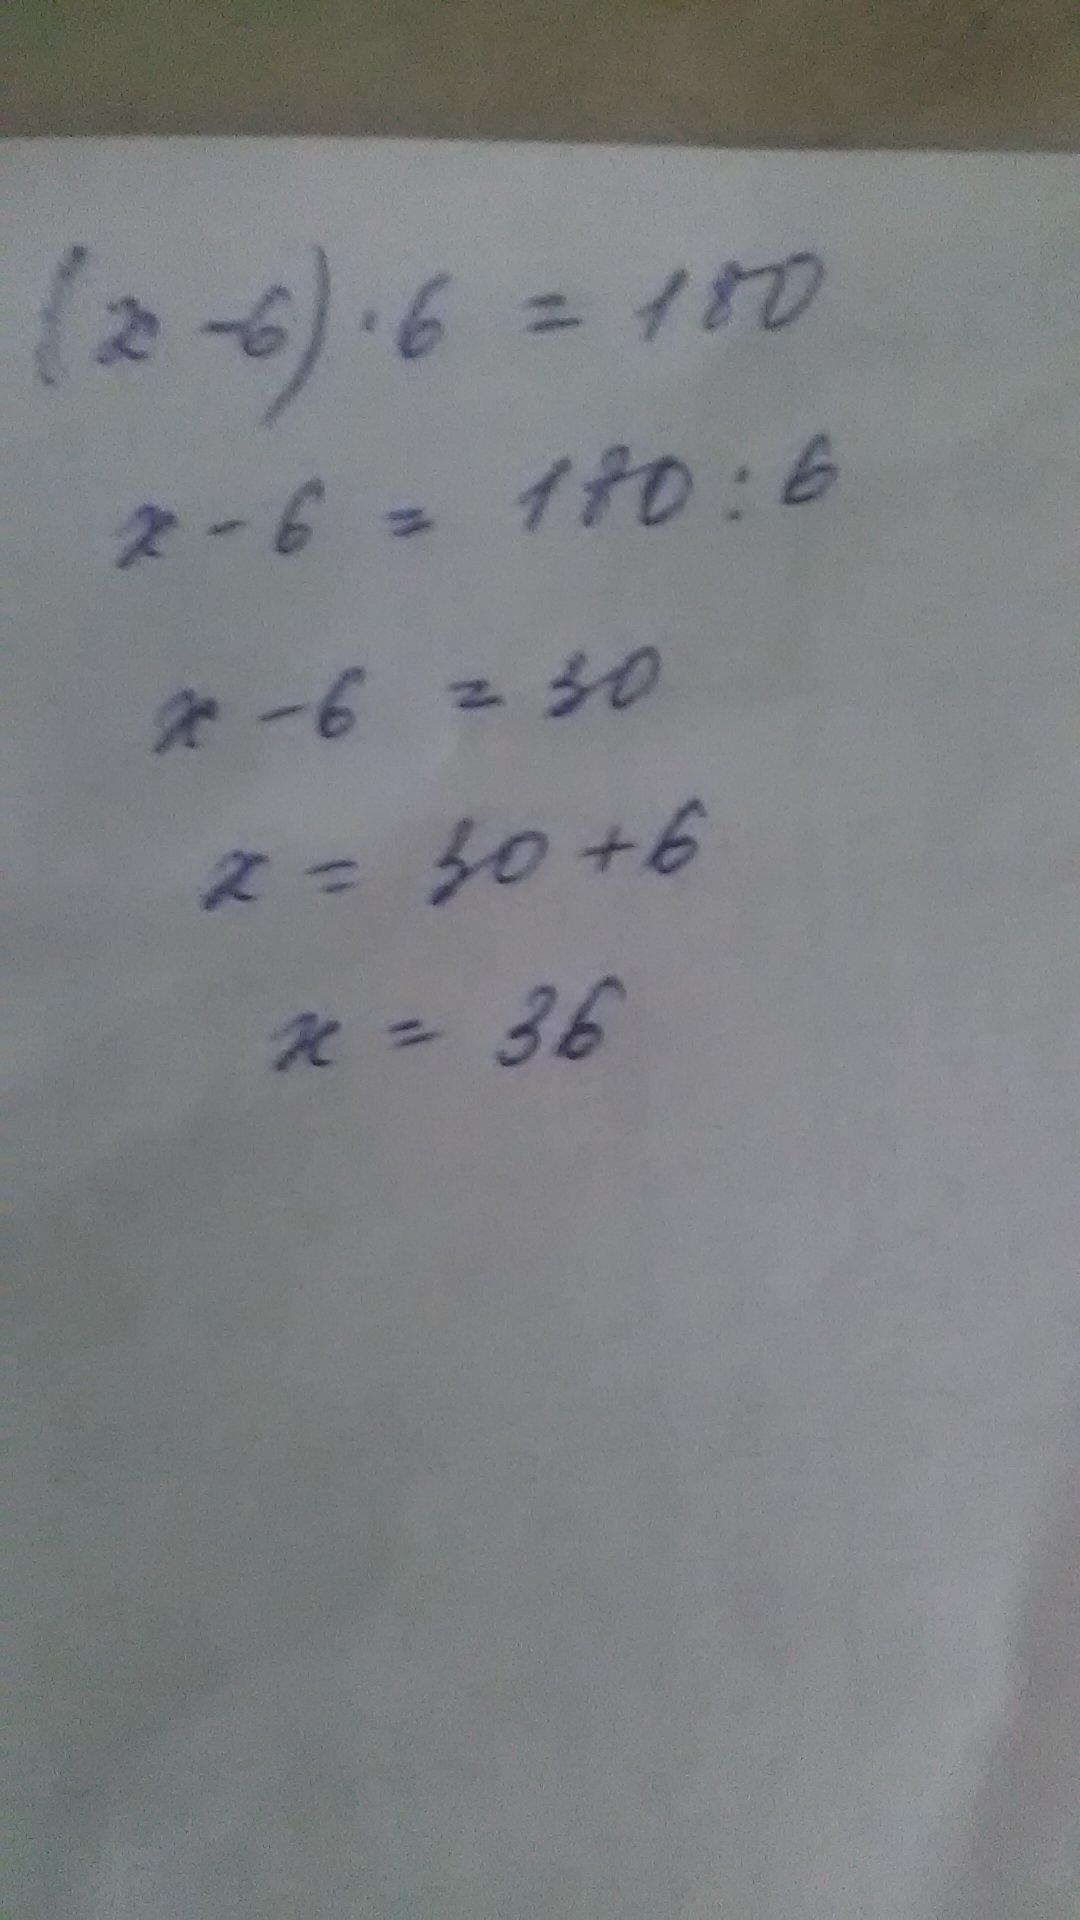 (x - 6) · 6 = 180
x - 6 = 180 : 6
x - 6 = 30
x = 30 + 6
x = 36